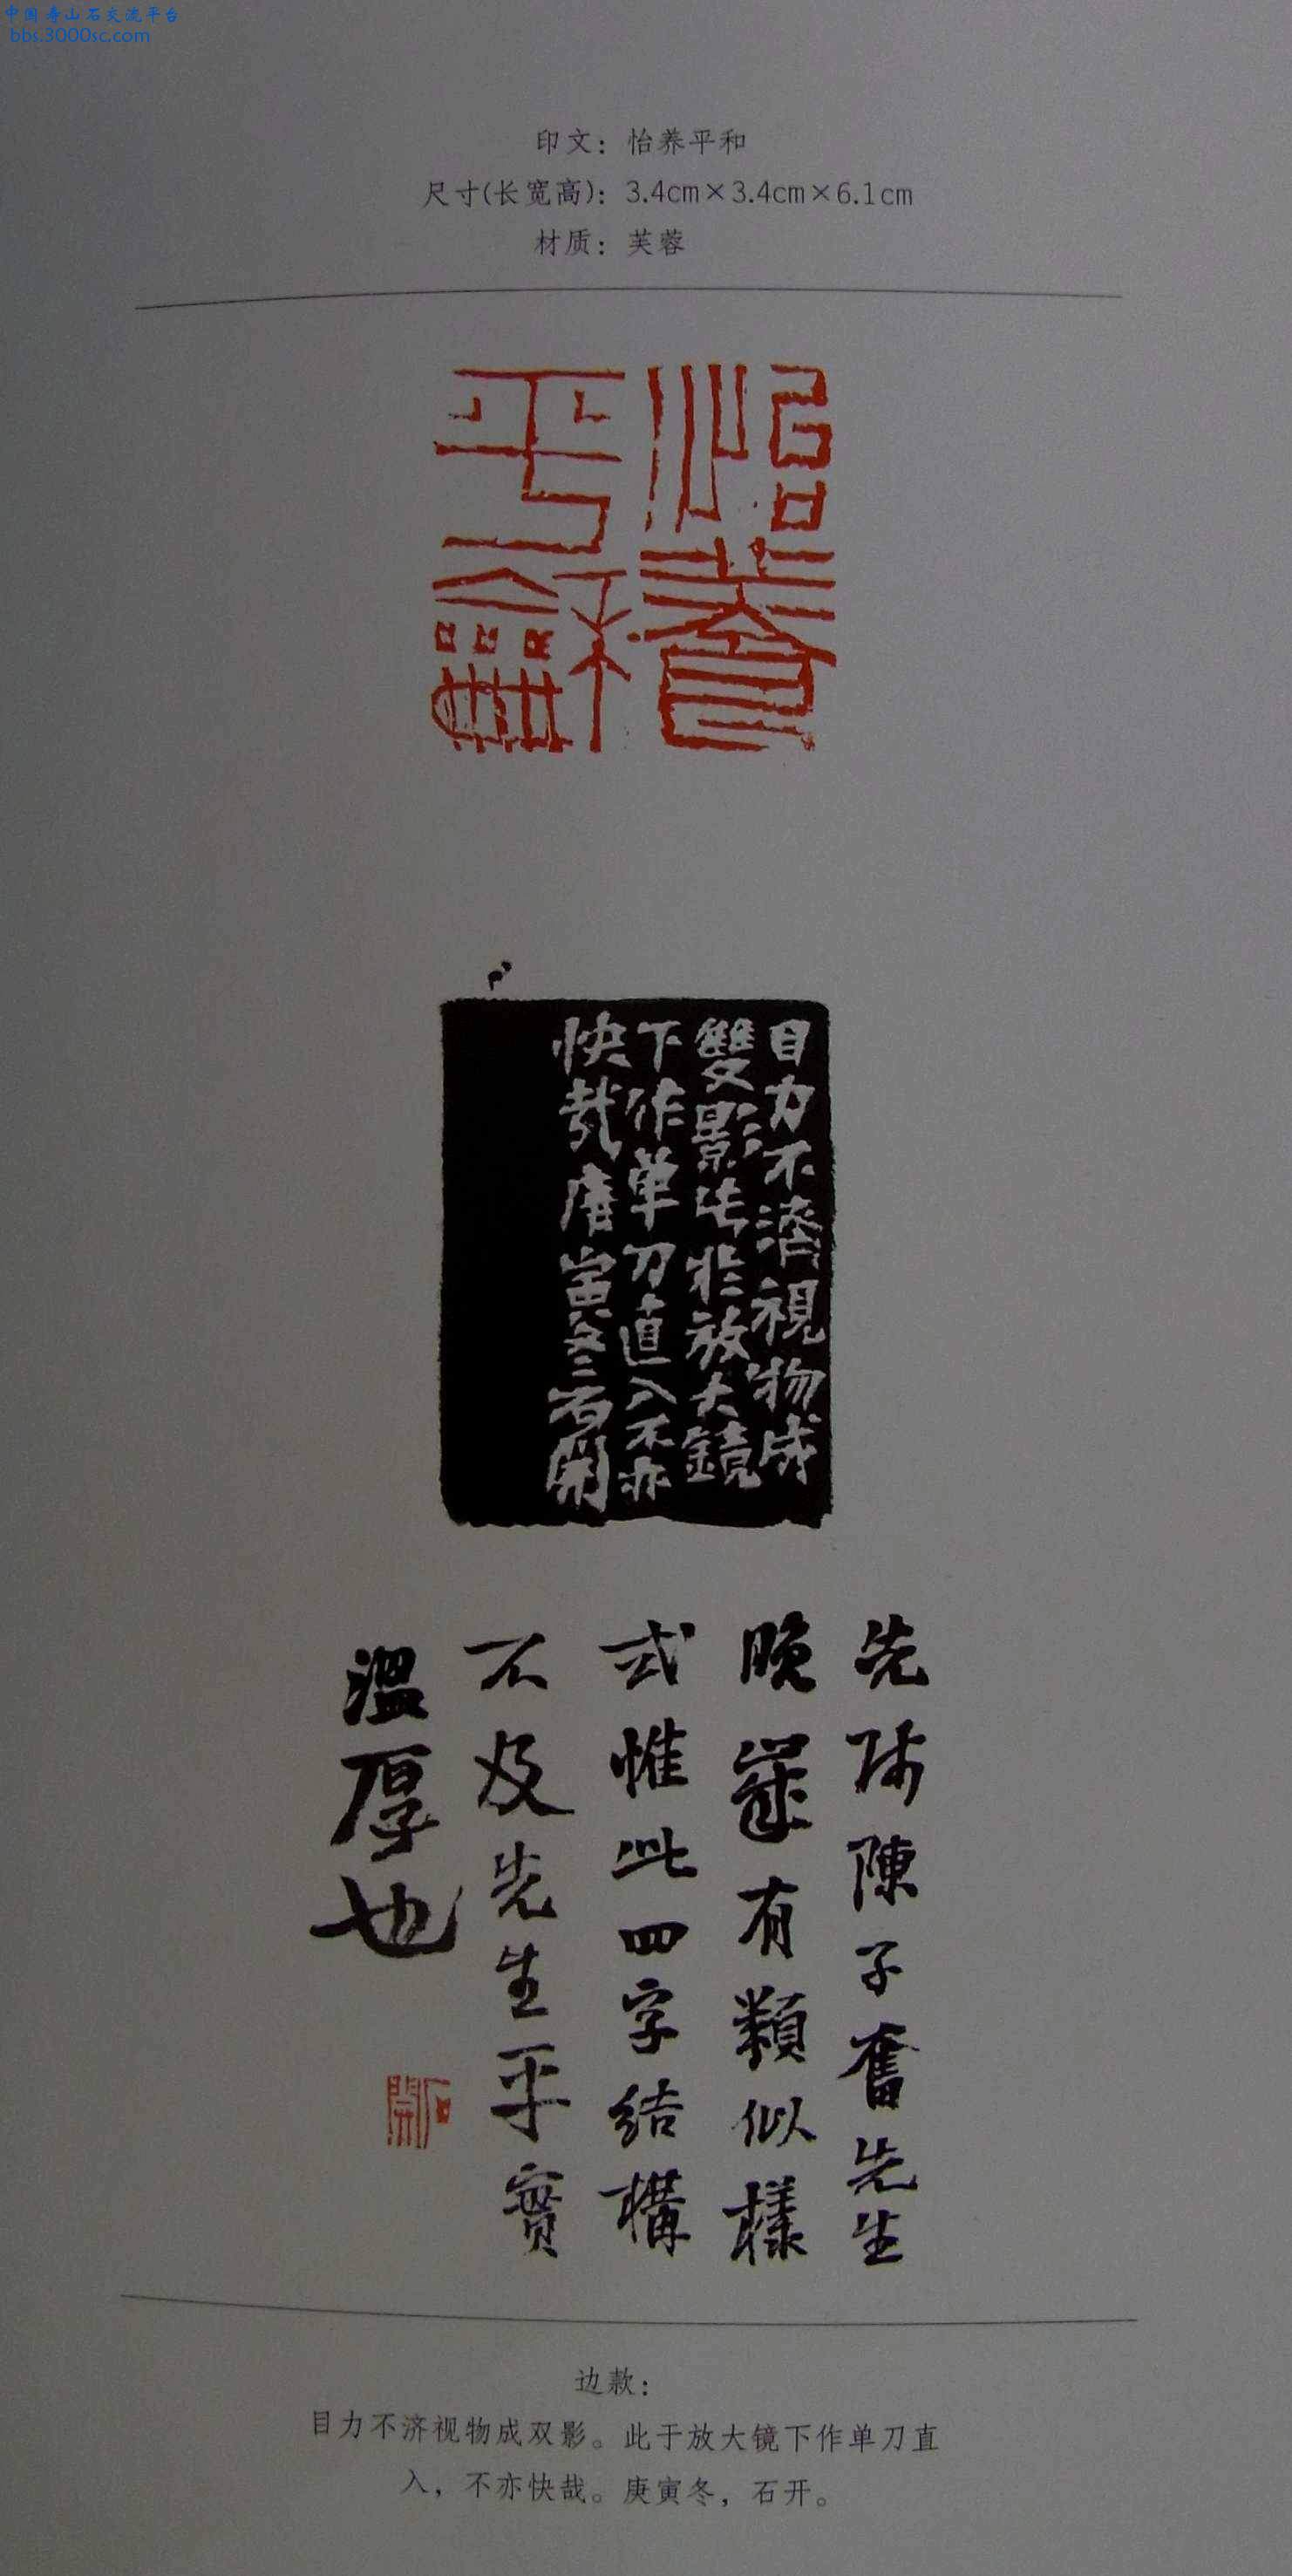 中国寿山石交流平台
bbs.3000sc.com
印文：怡养平和
尺寸(长宽高)：3.4cm×3.4cm×6.1cm
材质：芙蓉
怡養
平龢
目力不濟視物成
雙影此於放大鏡
下作单刀直入不亦
快哉庚寅冬石開
先师陳子奮先生
晚歲有類似樣
式惟此四字结構
不及先生平實
溫厚也
石開
边款：
目力不济视物成双影。此于放大镜下作单刀直
入，不亦快哉。庚寅冬，石开。